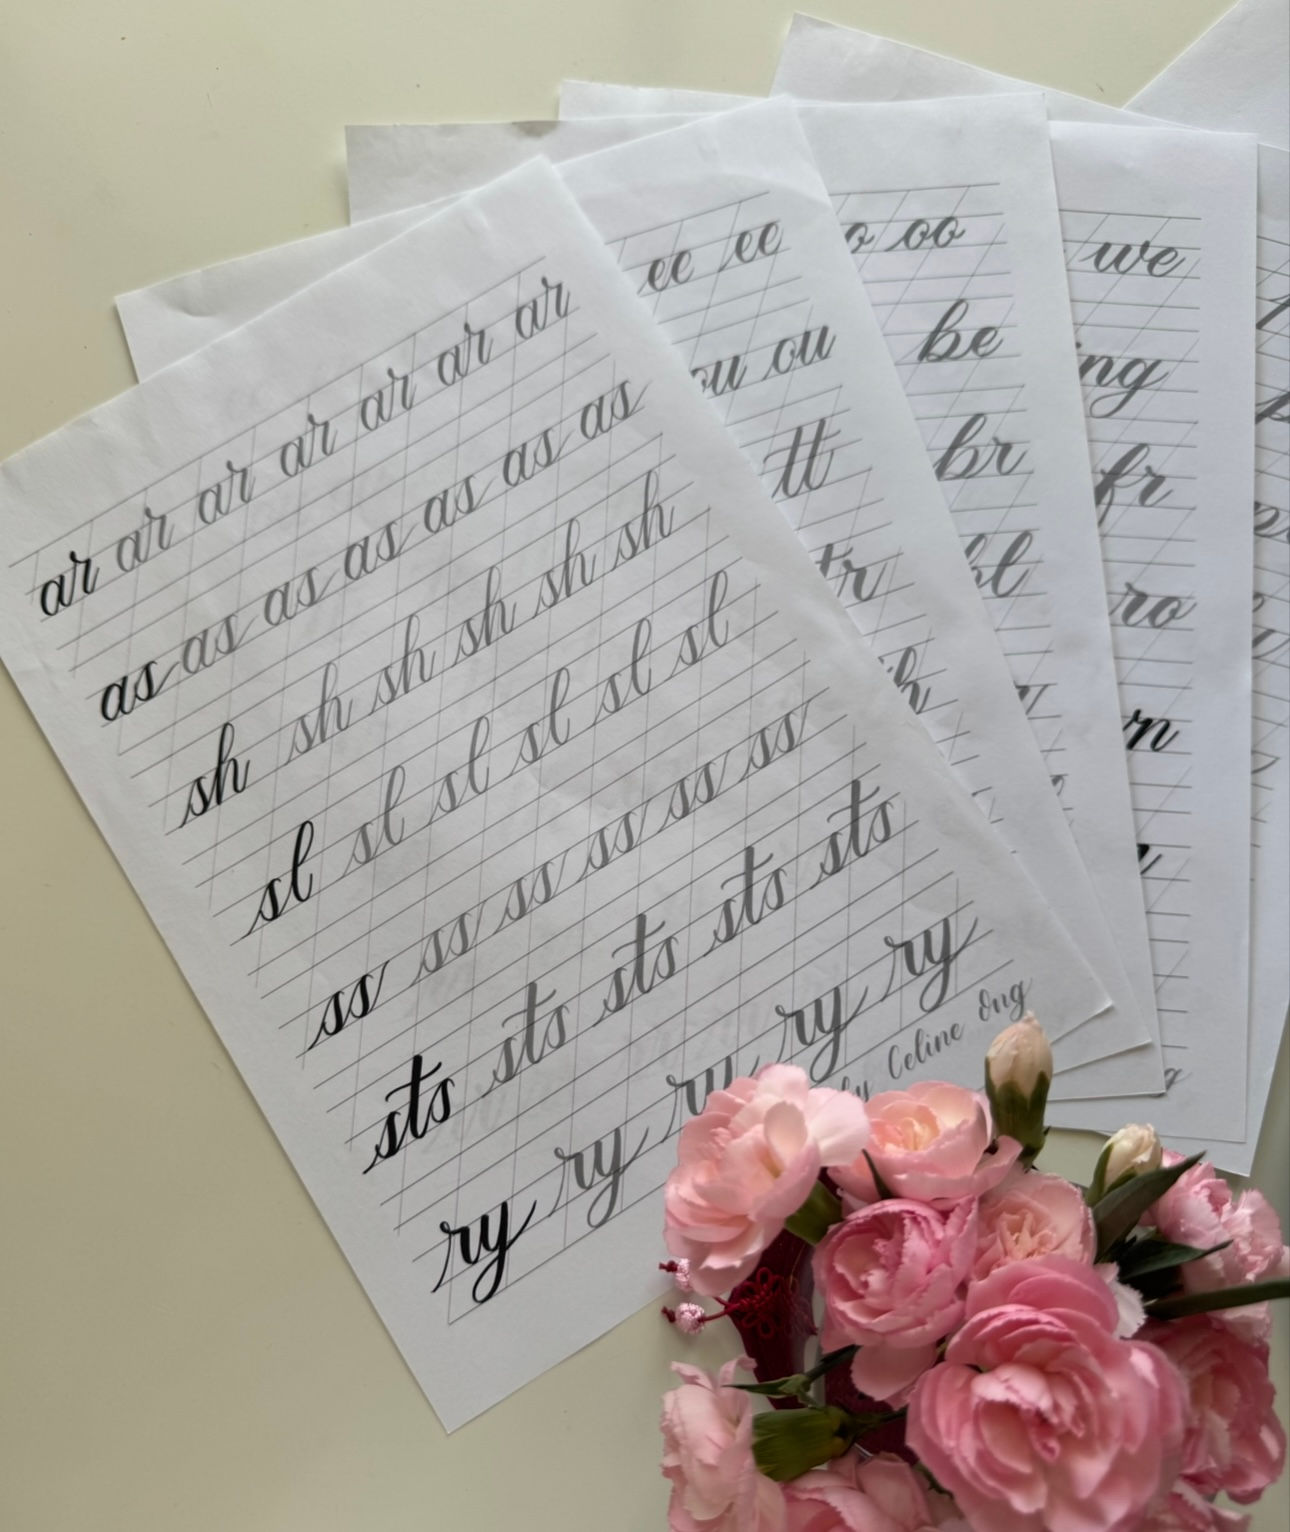 ar ar ar ar ar ar ar
as as as as as as as
sh sh sh sh sh sh
sl sl sl sl sl sl
ss ss ss ss ss ss
sts sts sts sts sts
ry ry ry ry ry
by Celine Ong
ee ee
ou ou
tt
tr
o oo
be
br
bl
we
ng
fr
ro